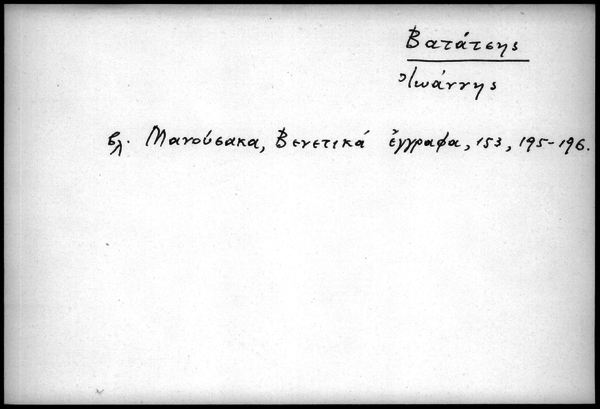 Βατάτσης
Ἰωάννης
βλ. Μανούσακα, Βενετικά ἔγγραφα, 153, 195-196.